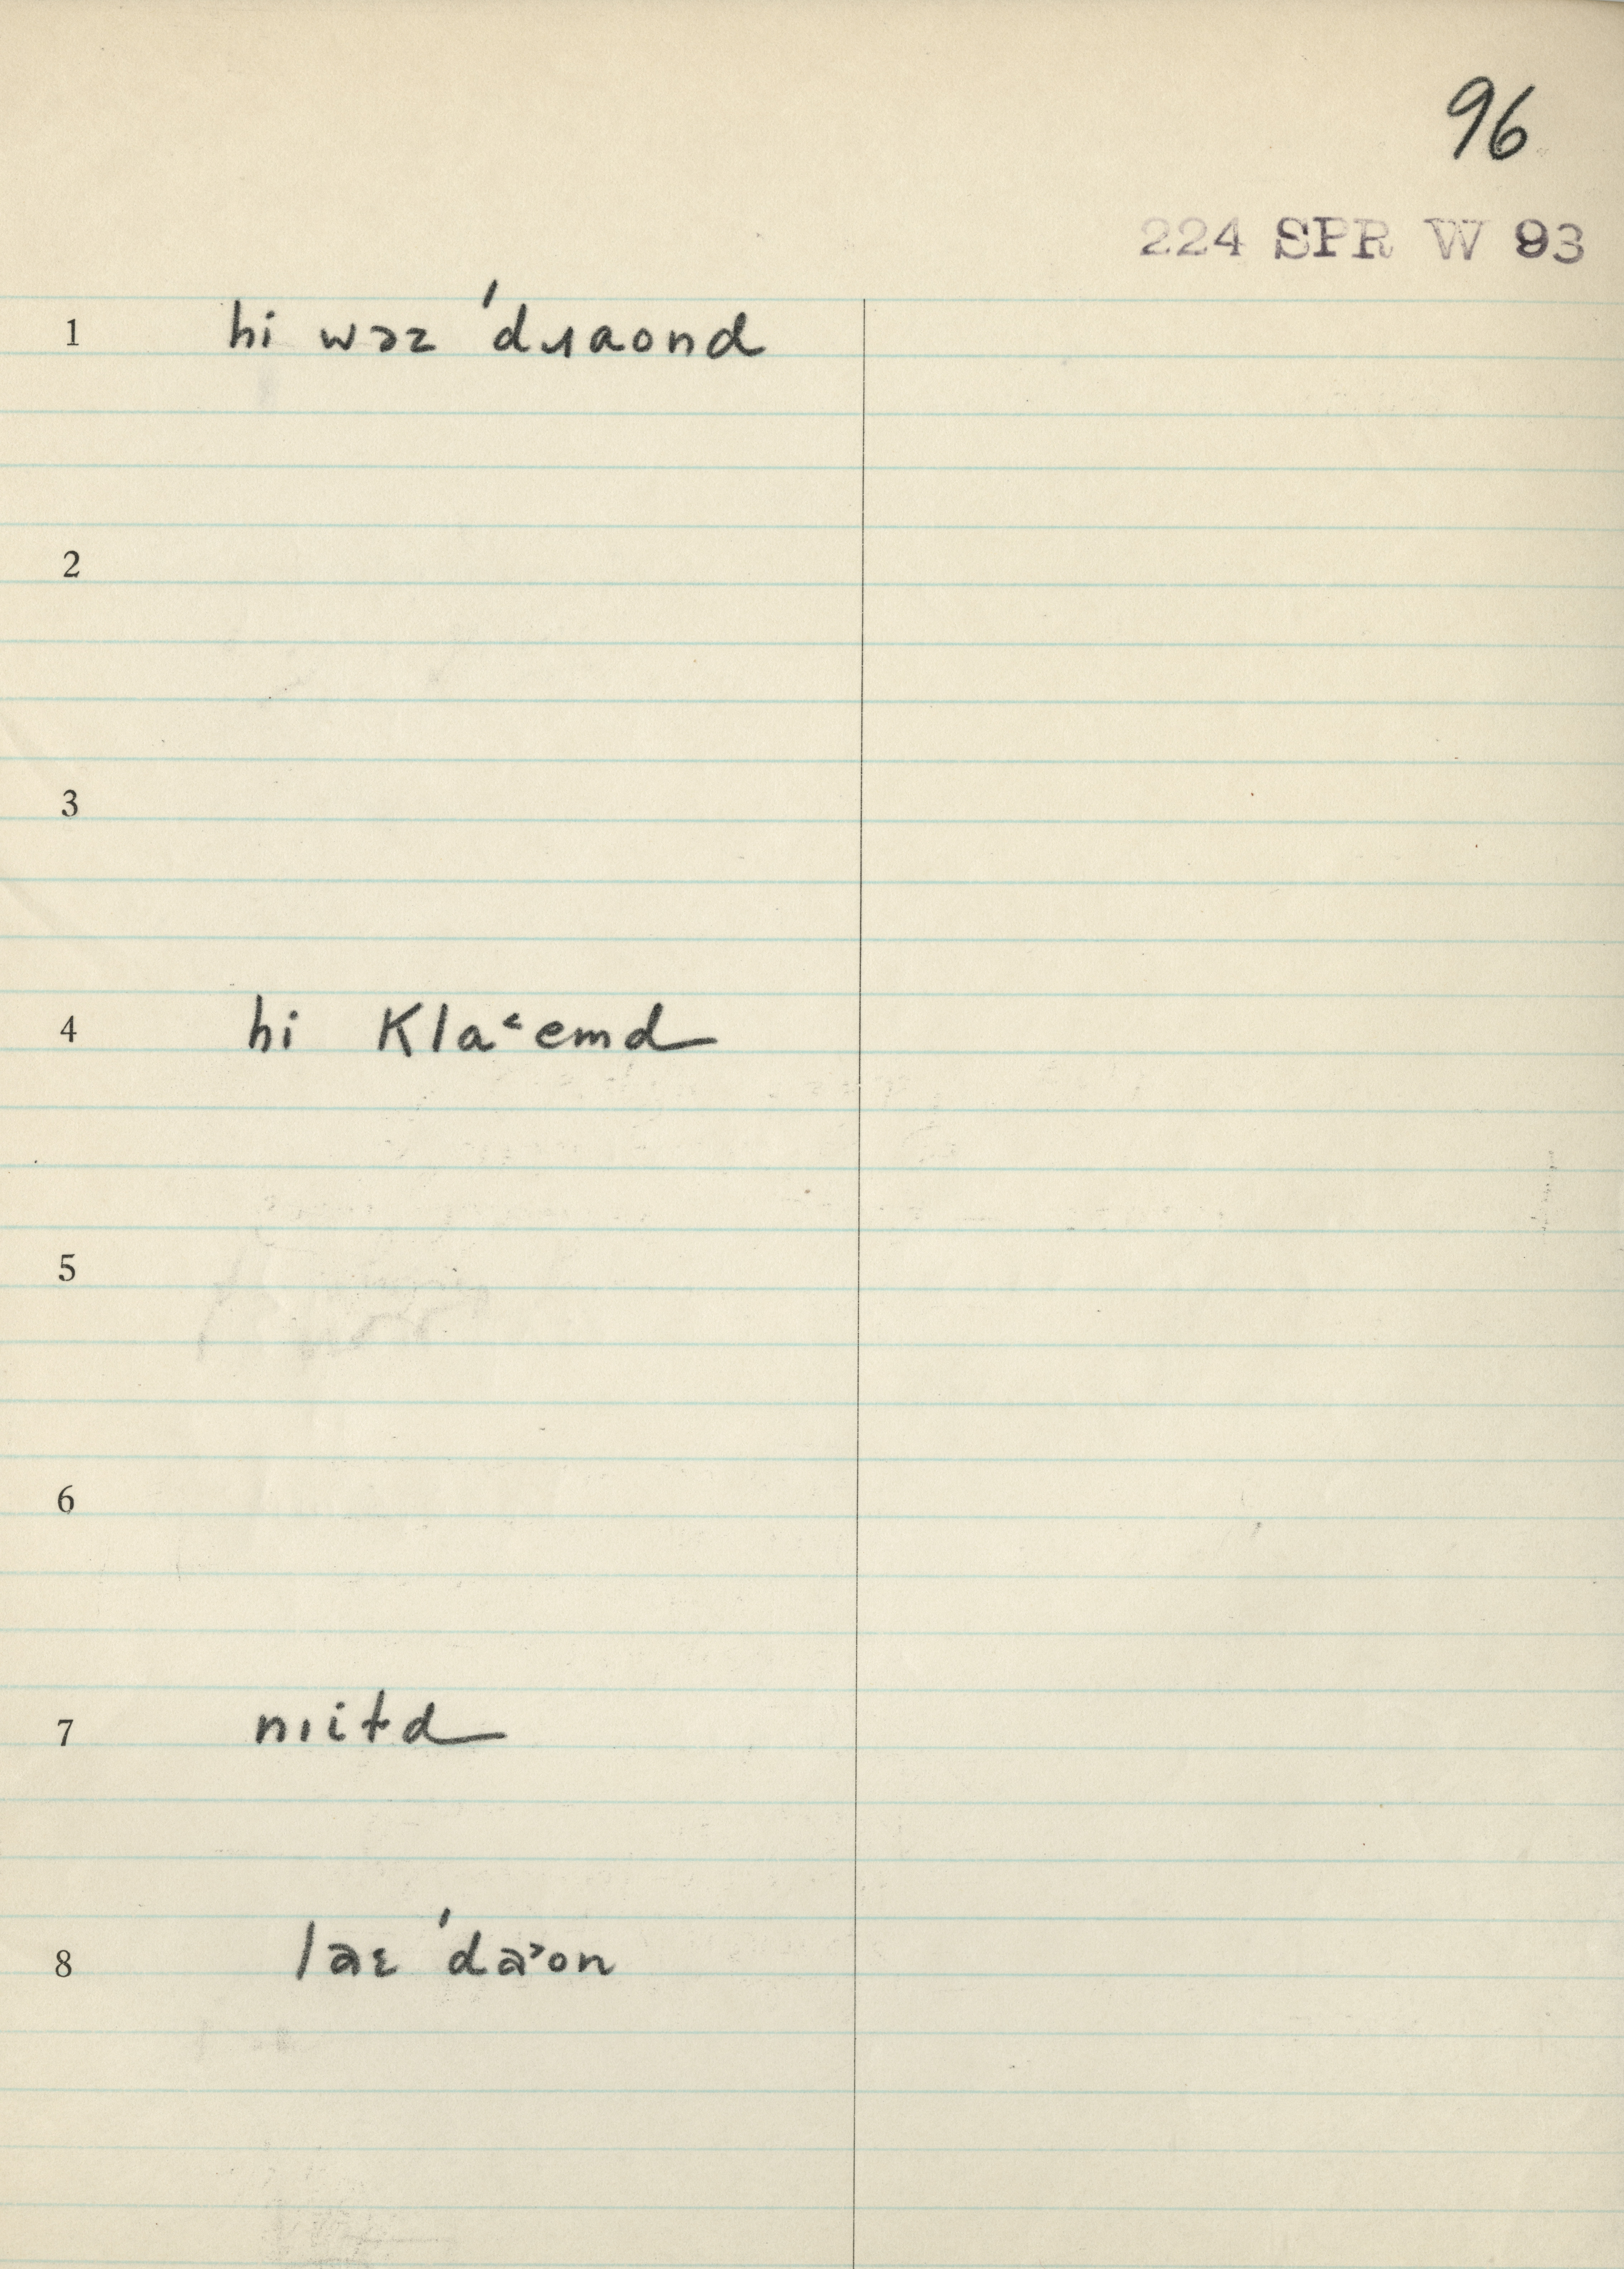 96
224 SPR W 93
1 hi wəz ˈdɹaond
2
3
4 hi kla˂emd
5
6
7 nıitd
8 laɛ ˈda˃on